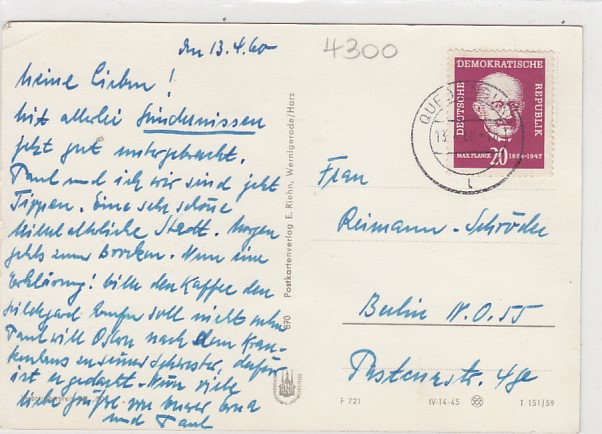 den 13.4.60
Meine Lieben!
Mit allerlei Hindernissen
jetzt gut untergebracht.
Paul und ich wir sind jetzt
Tippen. Eine sehr schöne
mittelalterliche Stadt. Morgen
gehts zum Brocken. Nun eine
Erklärung! bitte den Kaffee den
Hildegard soll nicht
Paul will Ostern nach dem Kran-
kenhaus zu seiner Schwester, dafür
ist er gedacht. Nun viele
liebe Grüße von
und Paul
4300
DEUTSCHE DEMOKRATISCHE REPUBLIK
MAX PLANCK 20 1858-1947
Frau
Reimann-Schröder
Berlin N.O. 55
4ge
670 Postkartenverlag E. Riehn, Wernigerode/Harz
F 721 IV-14-45 T 151/59